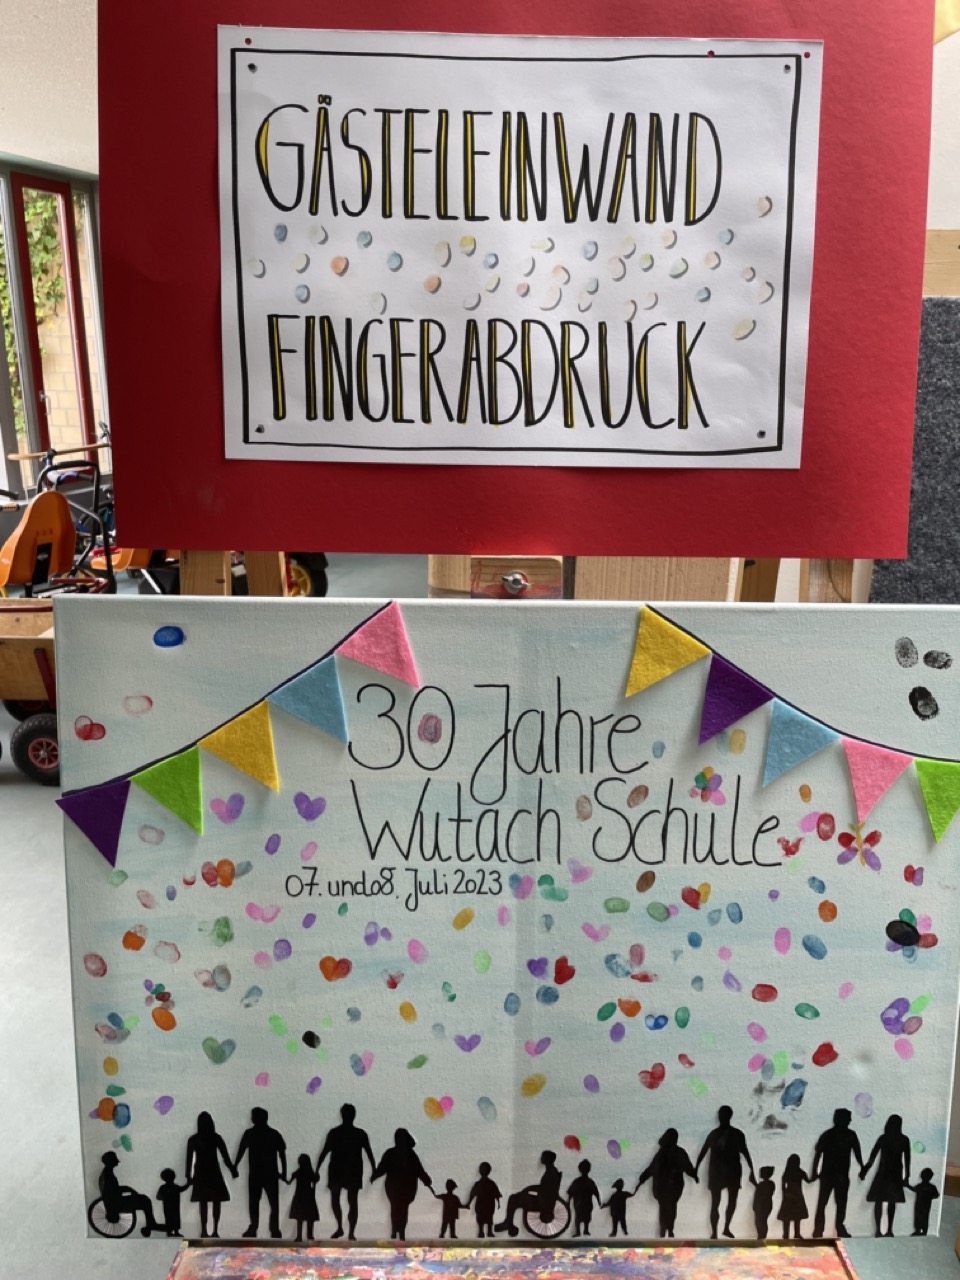 GÄSTELEINWAND
FINGERABDRUCK
30 Jahre
Wutach Schule
07. und 08. Juli 2023